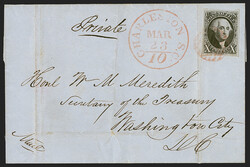 Private
CHARLESTON S.C.
MAR
23
10
Honl W M Meredith
Secretary of the Treasury
Washington City
D.C